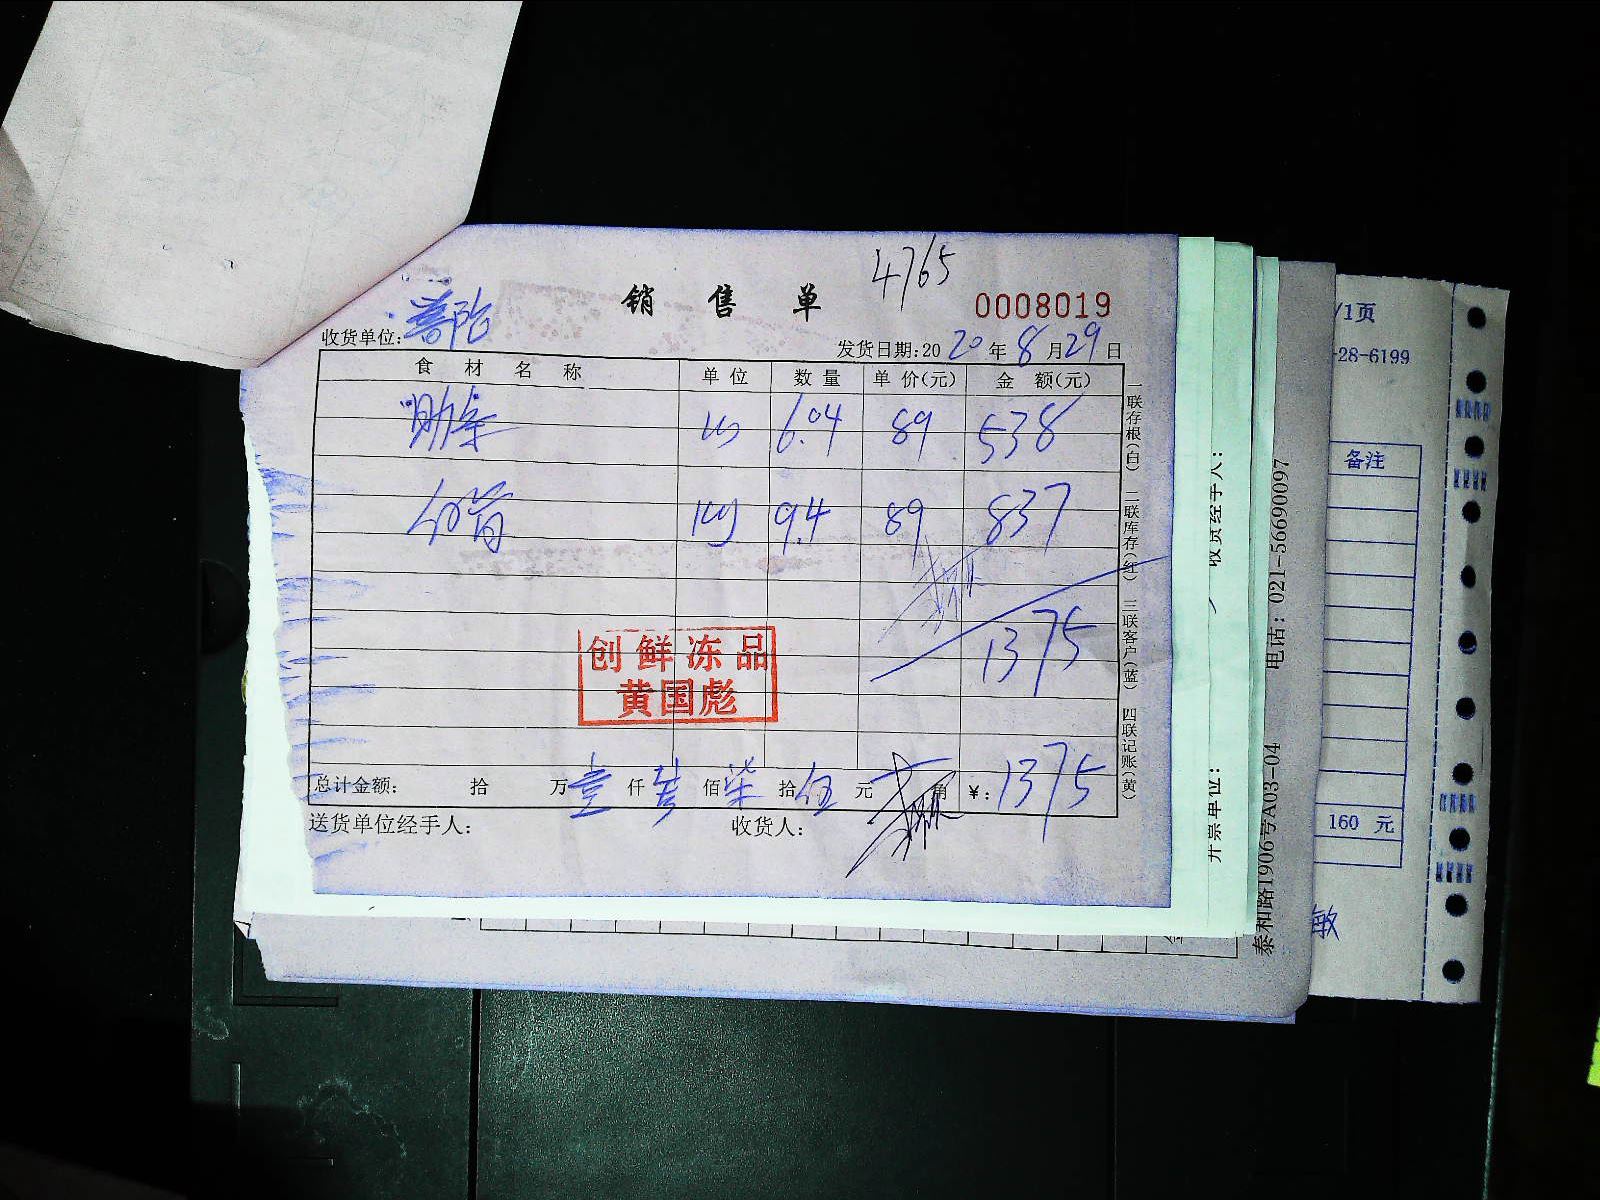 4765
销售单
0008019
收货单位:
发货日期:2020年8月29日
食材名称 单位 数量 单价(元) 金额(元)
KG 6.04 89 538
KG 9.4 89 837
1375
创鲜冻品
黄国彪
总计金额: 拾 万壹仟叁佰柒拾伍元 角 ¥:1375
送货单位经手人: 收货人:
一联存根(白) 二联库存(红) 三联客户(蓝) 四联记账(黄)
收货经手人:
开票单位:
电话: 021-56690097
泰和路1906号A03-04
/1页
-28-6199
备注
160 元
敏